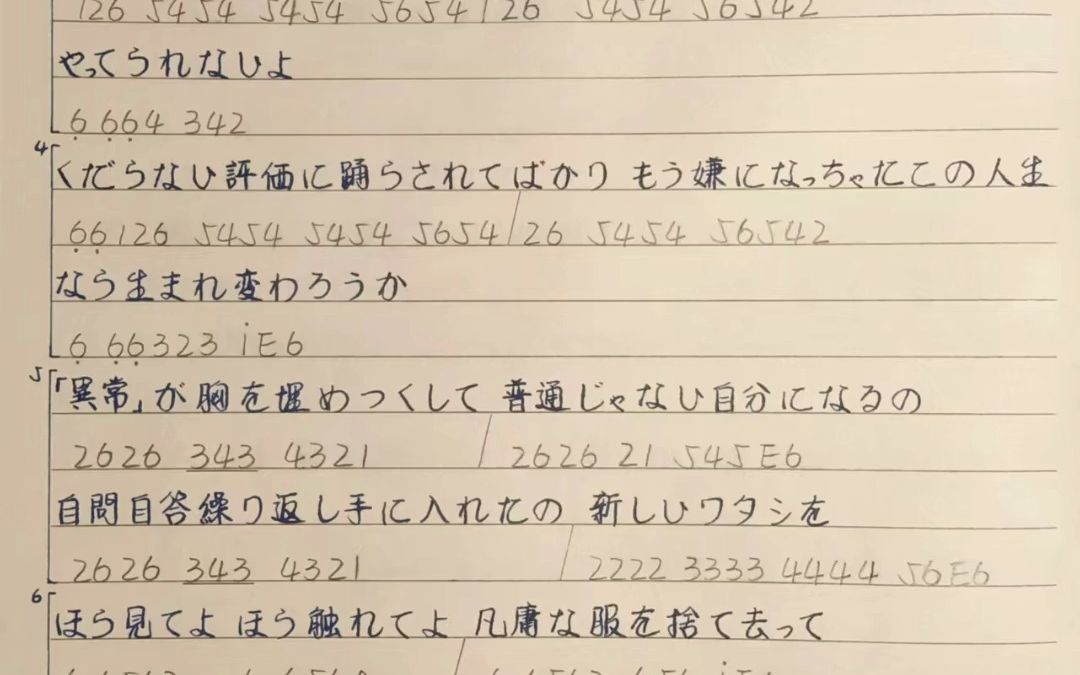 126 5454 5454 5654 / 26 5454 56542
やってられないよ
6 664 342
4 くだらない評価に踊らされてばかり もう嫌になっちゃたこの人生
66126 5454 5454 5654 / 26 5454 56542
なら生まれ変わろうか
6 66323 iE6
5 「異常」が胸を埋めつくして 普通じゃない自分になるの
2626 343 4321 / 2626 21 545E6
自問自答繰り返し手に入れたの 新しいワタシを
2626 343 4321 / 2222 3333 4444 56E6
6 ほら見てよ ほら触れてよ 凡庸な服を捨て去って